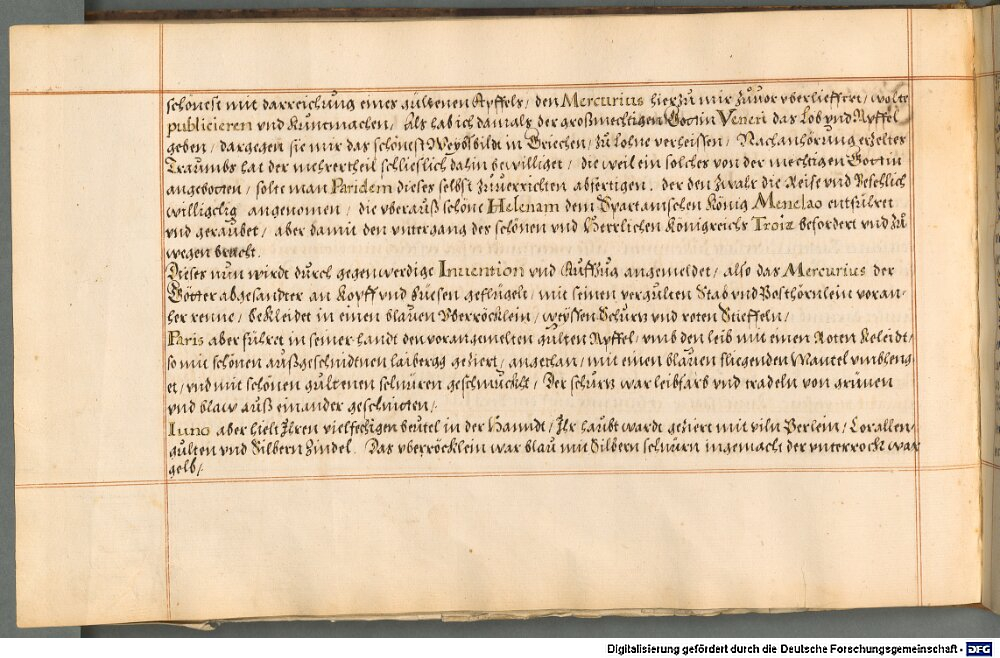 schönest mit darreichung eines gülbenen Apffels / den Mercurius hierzu mir zuuor vberlieffert / wolte
publicieren vnd Kuntmachen / Als hab ich damals der großmechtigen Göttin Veneri das Lob vnd Apffel
geben / dargegen sie mir das schönest Weybsbildt in Griechen / zu Lohne verheissen / Nach anhörung erzeltes
Traumbs hat der mehrertheil schließlich dahin bewilliget / die weil ein solches von der mechtigen Göttin
angebotten / solte man Paridem dieses selbst zuuerrichten abfertigen. der den zwahr die Reise vnd Befehlich
willigclig angenomen / die vberauß schöne Helenam dem Spartanischen König Menelao entfüehret
vnd geraubet / aber damit den vntergang des schönen vnd Herrlichen Königreichs Troiæ befördert vnd zu
wegen bracht.
Dieses nun wirdt durch gegenwerdige Inuention vnd Auffzug angemeldet / also das Mercurius der
Götter abgesandter an Kopff vnd Füesen geflügelt / mit seinen vergulten Stab vnd Posthörnlein voran-
her renne / bekleidet in einen blauen Vberröcklein / weyssen Schurtz vnd roten Stieffeln /
Paris aber führet in seiner handt den vorangemelten gülten Apffel / vmb den leib mit einen Roten Kleidt /
so mit schönen außgeschnidtnen laibergg geziert / angethan / mit einen blauen fliegenden Mantel vmbheng
et / vnd mit schönen gultenen schnüren geschmuckht / Der schurtz war leibfarb vnd tradeln von grünen
vnd blaw auß einander geschnitten /.
Iuno aber hielt Ihren vielfechigen beutel in der Hanndt / Ihr haubt wardt geziert mit viln Perlein / Corallen
gulten vnd Silbern Zindel. Das vberröcklein war blau mit Silbern schnürn ingemacht der vnterrockt war
gelb /.
Digitalisierung gefördert durch die Deutsche Forschungsgemeinschaft - DFG